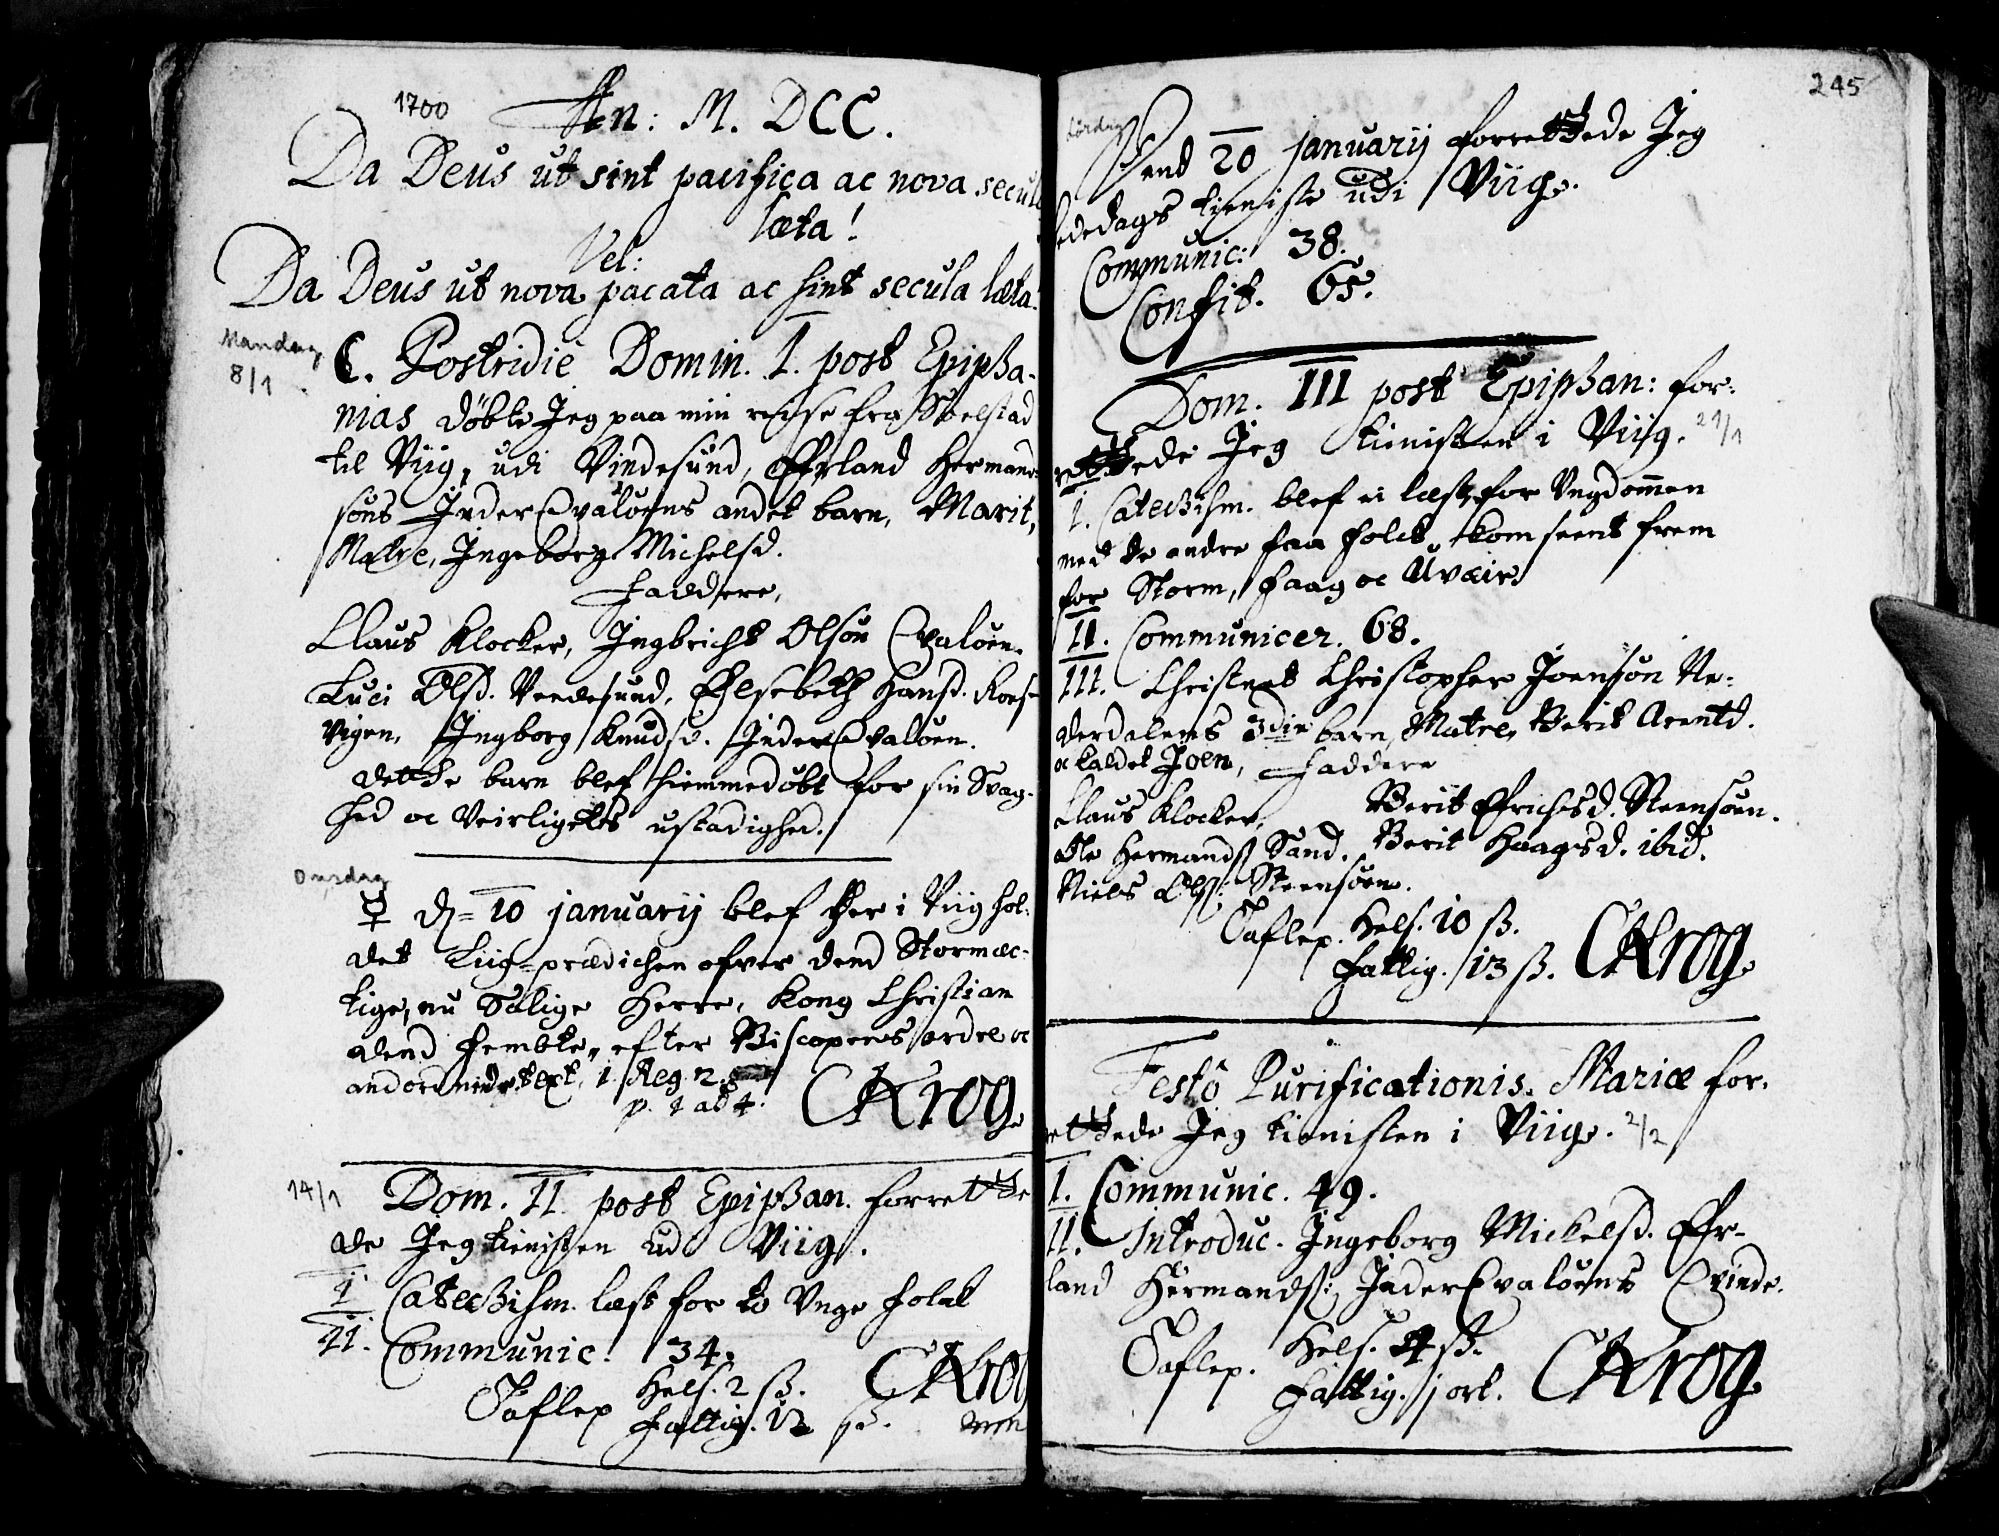 1700 An: M. DCC.
Da Deus ut sint pacifica ac nova secula
læta!
Vel:
Da Deus ut nova pacata ac sint secula læta!
Mandag
8/1
C. Postridie Domin. I. post Epipha-
nias døbte Jeg paa min reise fra
til Viig, udi Vindesund, Erland Hermand-
søns Inder Qvaløens andet barn, Marit,
Matre, Ingeborg Michelsd.
Faddere,
Claus Klocker, Ingbricht Olsøn Qvaløen.
Luci Olsd. Vendesund, Elsebeth Hansd.
vigen, Ingborg Knudsd. Inder Qvaløen.
dette barn blef hiemmedøbt for sin Svag-
hed oc Veirligets ustadighed.
Onsdag
☿ d= 10 januarij blef her i Viig hol-
det Liig-prædichen ofver dend Stormæc-
tige, nu Salige Herre, Kong Christian
dend Fembte, efter Biscopens ordre oc
andordnede text, 1. Reg. 2.
p. 1 ad 4. CKrog.
14/1
Dom. II. post Epiphan. forrette-
de Jeg tienisten udi Viig.
I. Catechism. læst for to Unge Folck
II. Communic. 34.
Taflep. Hels. 2 ß. CKrog
Fattig. 12 ß.
245
Lørdag
Dend 20 januarij forrettede Jeg
bededags tieniste udi Viig.
Communic: 38.
Confit. 65.
Dom. III post Epiphan: for-
rettede Jeg tienisten i Viig. 21/1
I. Catechism. blef ei læst for Ungdommen
med de andre faa Folck kom seent frem
for Storm, Faag oc Uvæir.
II. Communicer. 68.
III. Christnet Christopher Joensøn Ne-
derdalens 3die barn, Matre, Berit Arentd.
oc kaldet Joen, Faddere
Claus Klocker, Berit Erichsd. Steensøen.
Ole Hermands Sand. Berit Haagsd. ibid.
Niels Olss: Steensøen.
Taflep. Hels. 10 ß.
Fattig. 13 ß. CKrog.
Festô Purificationis Mariæ for-
rettede Jeg tienisten i Viig. 2/2
I. Communic. 49.
II. Introduc. Ingeborg Mickelsd. Er-
land Hermandss: Inder Qvaløens Qvinde.
Taflep. Hels. 4 ß.
Fattig. j ort. CKrog.